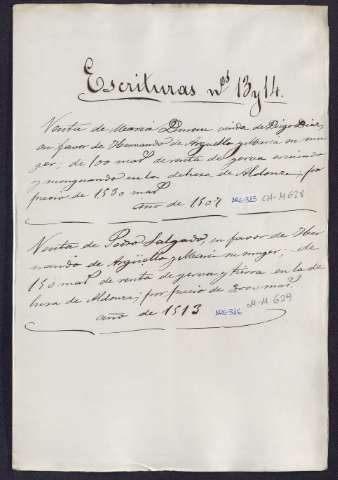 Escrituras nos 13 y 14.
Venta de María viuda de Diego Diaz,
en favor de Hernando de Arguello y María su mu-
ger; de 100 mars de renta de yerva creciendo
y menguando en la dehesa de Aldonza; por
precio de 1530 mars
año de 1507 ARG-325 CH-M 628
Venta de Pedro Salgado, en favor de Her-
nando de Argüello y María su muger, de
150 mars de renta de yerva y tierra en la de-
hesa de Aldonza; por precio de mars.
año de 1513 ARG-326 CH-M 629